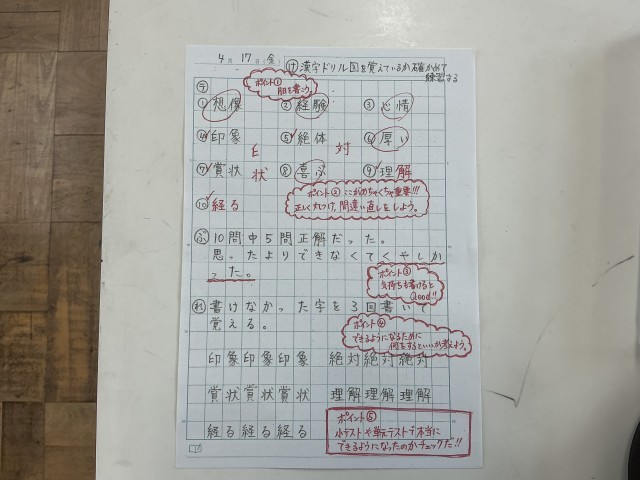 4月17日(金) ㋘漢字ドリル国を覚えているか確かめて
練習する
㋢
ポイント①
日を書こう。
①想像 ②経験 ③心情
④印象 ⑤絶体 ⑥厚い
E 対
⑦賞状 状 ⑧喜ぶ ⑨理解
⑩経る
ポイント② ここがめちゃくちゃ重要!!!
正しく丸つけ、間違い直しをしよう。
㋫10問中5問正解だった。
思ったよりできなくてくやしか
った。
ポイント③
気持ちも書けると
Good!!
㋹書けなかった字を3回書いて
覚える。
ポイント④
できるようになるために
何をするといいか考えよう。
印象印象印象 絶対絶対絶対
賞状賞状賞状 理解理解理解
経る経る経る
ポイント⑤
小テストや単元テストで本当に
できるようになったのかチェックだ!!